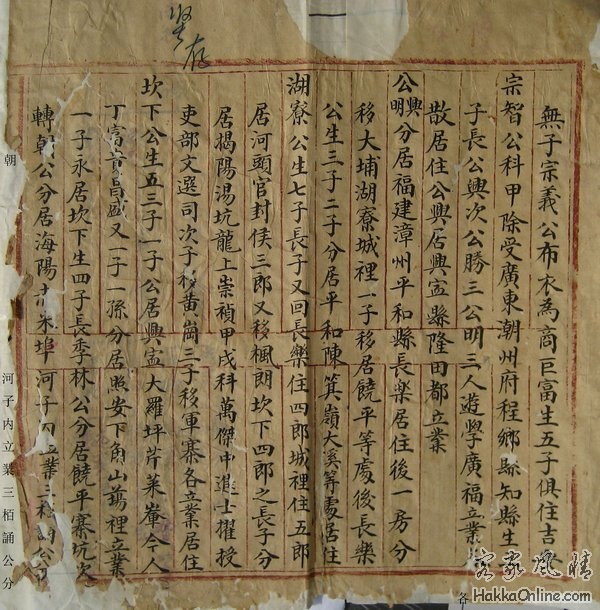 堅存
無子宗義公布衣為商巨富生五子俱住吉
宗智公科甲除受廣東潮州府程鄉縣知縣生
子長公興次公勝三公明三人遊學廣福立業
散居住公興居興寧縣隆田都立業
公興明分居福建漳州平和縣長樂居住後一房分
移大埔湖寮城裡一子移居饒平等處後長樂
公生三子二子分居平和陳箕嶺大溪等處居住
湖寮公生七子長子又回長樂住四郎城裡住五郎
居河頭官封侯三郎又移楓朗坎下四郎之長子分
居揭陽湯坑龍上崇禎甲戌科萬傑中進士擢授
吏部文選司次子移黃崗三子移軍寨各立業居住
坎下公生五三子一子公居興寧大羅坪芹菜崙今人
丁富貴昌盛又一子一孫分居照安下角山蒭裡立業
一子永居坎下生四子長季林公分居饒平寨坑次
轉朝公分居海陽赤朱埠河子內立業三栢誦公分
朝
河子內立業三栢誦公分
各
客家風情
HakkaOnline.com